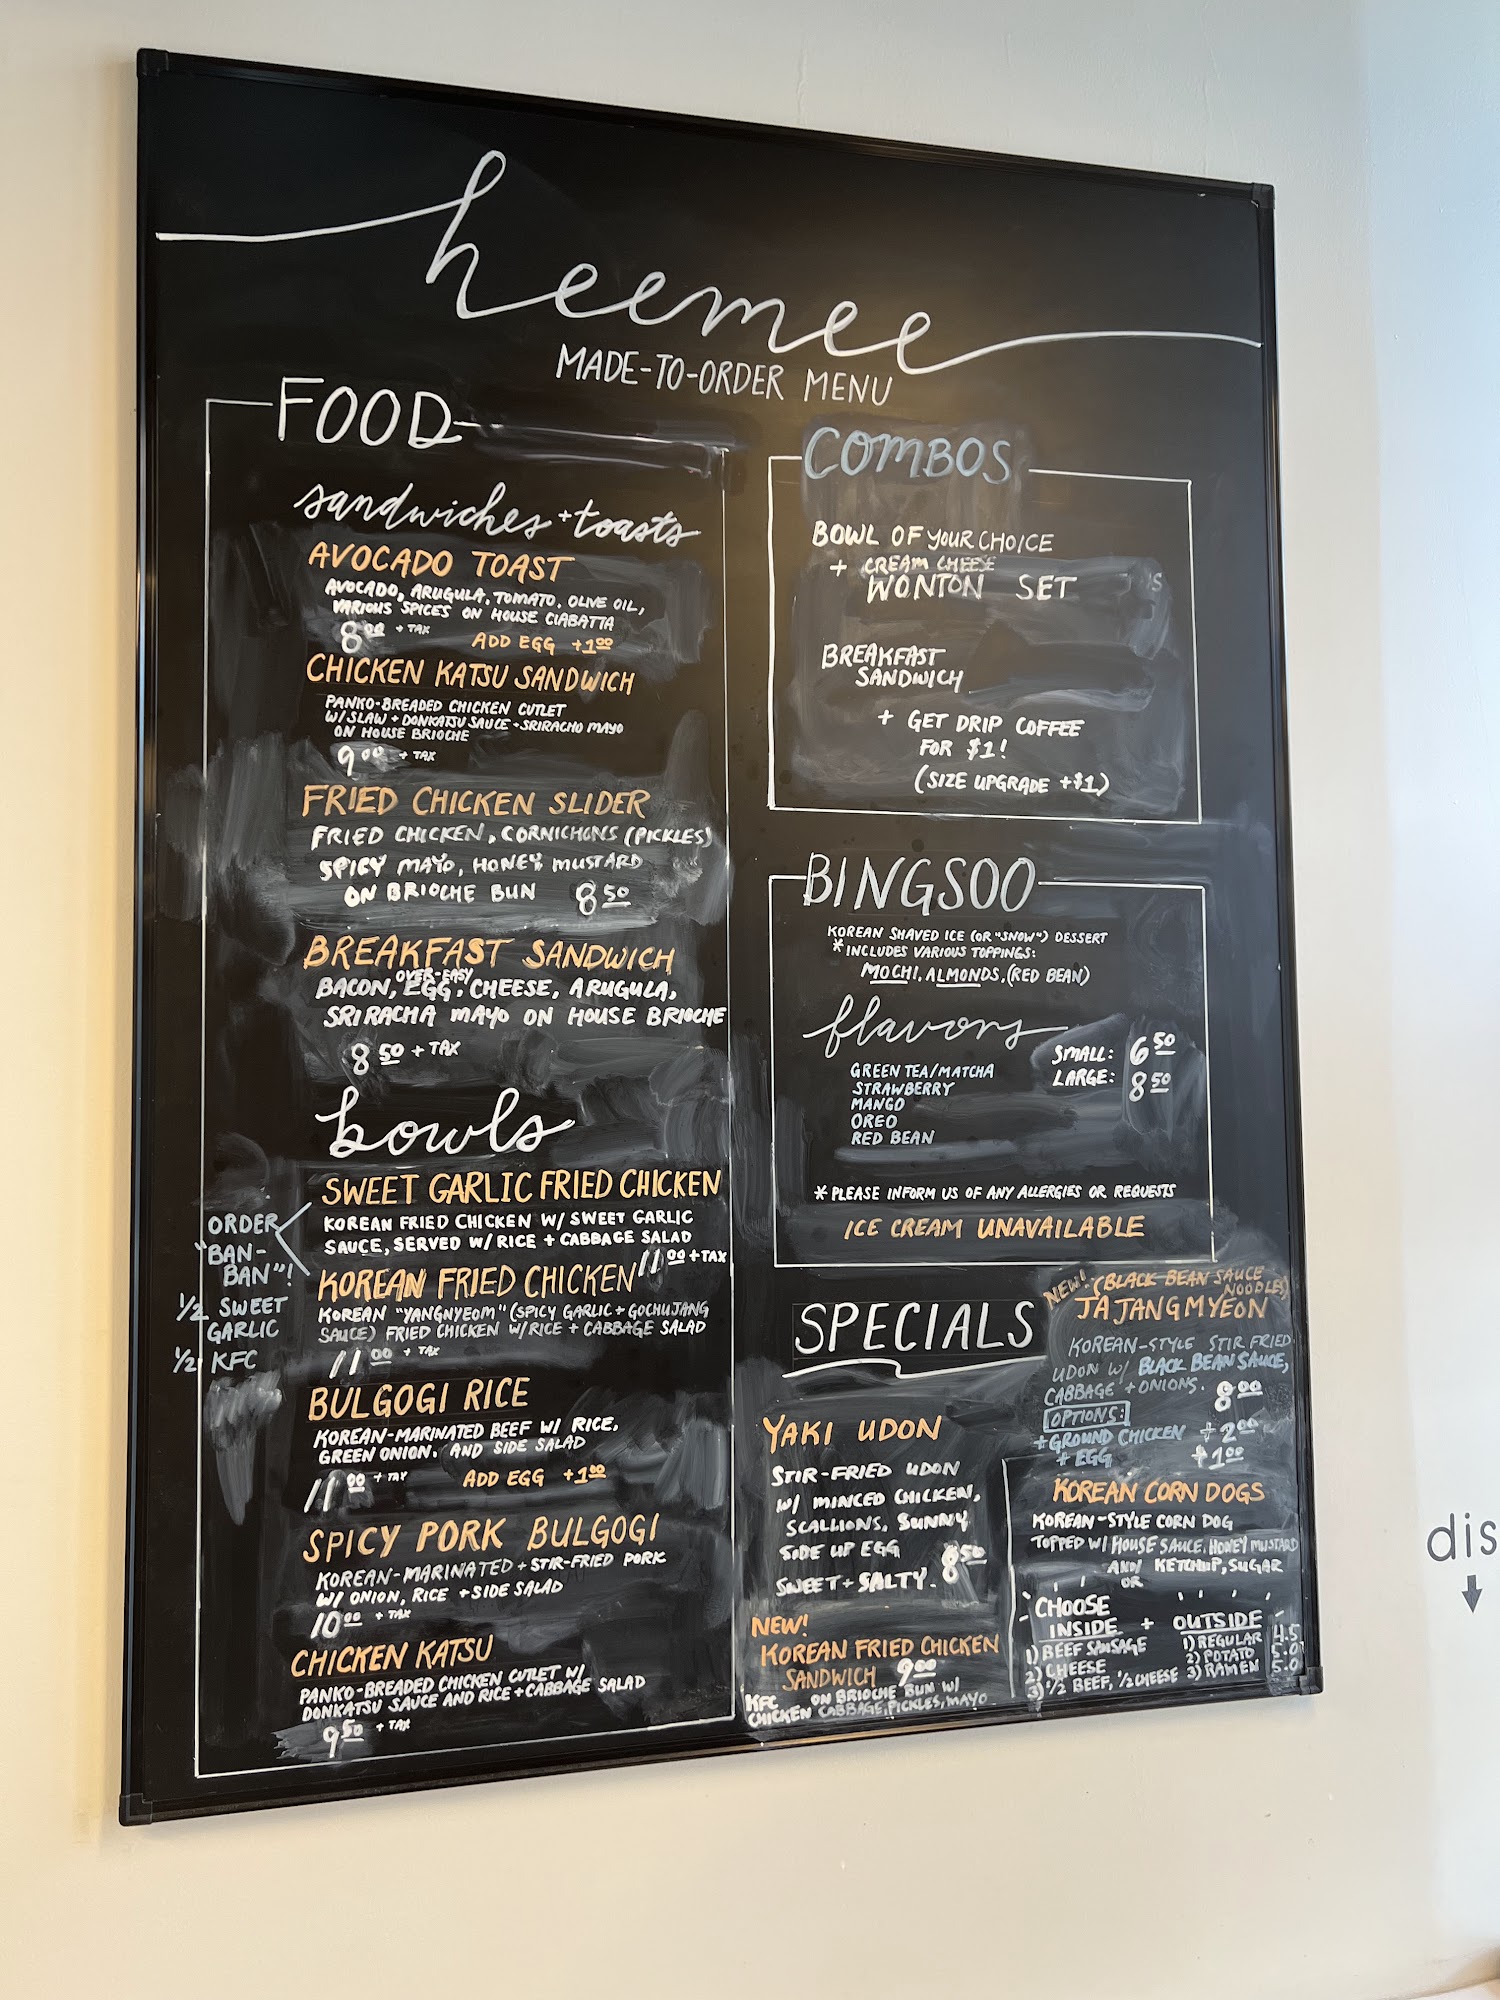 heemee
MADE-TO-ORDER MENU
FOOD
sandwiches + toasts
AVOCADO TOAST
AVOCADO, ARUGULA, TOMATO, OLIVE OIL,
VARIOUS SPICES ON HOUSE CIABATTA
8.00 + TAX ADD EGG +1.00
CHICKEN KATSU SANDWICH
PANKO-BREADED CHICKEN CUTLET
W/ SLAW + DONKATSU SAUCE + SRIRACHO MAYO
ON HOUSE BRIOCHE
9.00 + TAX
FRIED CHICKEN SLIDER
FRIED CHICKEN, CORNICHONS (PICKLES)
SPICY MAYO, HONEY MUSTARD
ON BRIOCHE BUN 8.50
BREAKFAST SANDWICH
OVER-EASY
BACON, EGG, CHEESE, ARUGULA,
SRIRACHA MAYO ON HOUSE BRIOCHE
8.50 + TAX
bowls
SWEET GARLIC FRIED CHICKEN
KOREAN FRIED CHICKEN W/ SWEET GARLIC
SAUCE, SERVED W/ RICE + CABBAGE SALAD
11.00 + TAX
KOREAN FRIED CHICKEN
KOREAN "YANGNYEOM" (SPICY GARLIC + GOCHUJANG
SAUCE) FRIED CHICKEN W/RICE + CABBAGE SALAD
11.00 + TAX
ORDER
"BAN-
BAN"!
1/2 SWEET
GARLIC
1/2 KFC
BULGOGI RICE
KOREAN-MARINATED BEEF W/ RICE,
GREEN ONION, AND SIDE SALAD
11.00 + TAX ADD EGG +1.00
SPICY PORK BULGOGI
KOREAN-MARINATED + STIR-FRIED PORK
W/ ONION, RICE + SIDE SALAD
10.00 + TAX
CHICKEN KATSU
PANKO-BREADED CHICKEN CUTLET W/
DONKATSU SAUCE AND RICE + CABBAGE SALAD
9.50 + TAX
COMBOS
BOWL OF YOUR CHOICE
+ CREAM CHEESE
WONTON SET
BREAKFAST
SANDWICH
+ GET DRIP COFFEE
FOR $1!
(SIZE UPGRADE +$1)
BINGSOO
KOREAN SHAVED ICE (OR "SNOW") DESSERT
*INCLUDES VARIOUS TOPPINGS:
MOCHI, ALMONDS, (RED BEAN)
flavors
GREEN TEA/MATCHA
STRAWBERRY
MANGO
OREO
RED BEAN
SMALL: 6.50
LARGE: 8.50
*PLEASE INFORM US OF ANY ALLERGIES OR REQUESTS
ICE CREAM UNAVAILABLE
SPECIALS
NEW! (BLACK BEAN SAUCE
NOODLES)
JAJANGMYEON
KOREAN-STYLE STIR FRIED
UDON W/ BLACK BEAN SAUCE,
CABBAGE + ONIONS. 8.00
OPTIONS:
+ GROUND CHICKEN +2.00
+ EGG +1.00
YAKI UDON
STIR-FRIED UDON
W/ MINCED CHICKEN,
SCALLIONS, SUNNY
SIDE UP EGG
SWEET + SALTY. 8.50
NEW!
KOREAN FRIED CHICKEN
SANDWICH 9.00
KFC ON BRIOCHE BUN W/
CHICKEN CABBAGE, PICKLES, MAYO
KOREAN CORN DOGS
KOREAN-STYLE CORN DOG
TOPPED W/ HOUSE SAUCE, HONEY MUSTARD
AND/ KETCHUP, SUGAR
OR
CHOOSE
INSIDE + OUTSIDE
1) BEEF SAUSAGE 1) REGULAR 4.5
2) CHEESE 2) POTATO 5.0
3) 1/2 BEEF, 1/2 CHEESE 3) RAMEN 5.0
dis